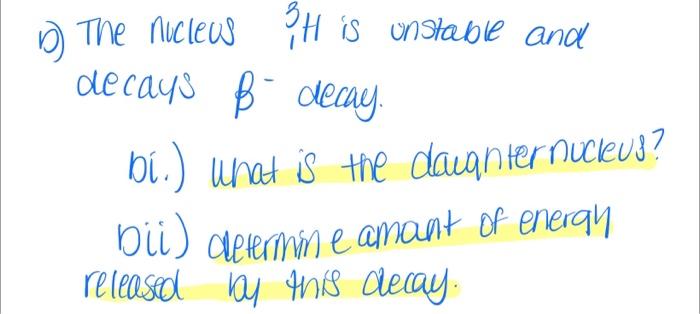 b) The nucleus ³₁H is unstable and
decays β⁻ decay.
bi.) what is the daughter nucleus?
bii) determine amount of energy
released by this decay.